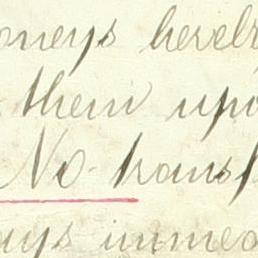 oneys hereb
them upo
No transf
ays immed